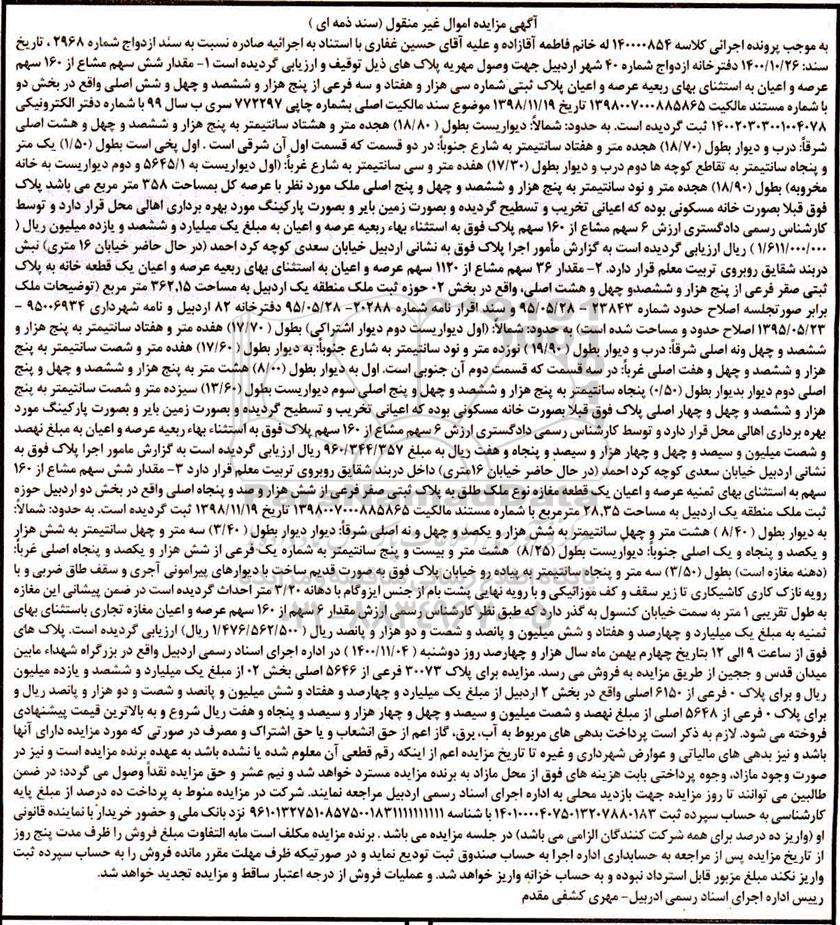 آگهی مزایده اموال غیر منقول (سند ذمه ای )
به موجب پرونده اجرائی کلاسه ۱۴۰۰۰۰۸۵۴ له خانم فاطمه آقازاده و علیه آقای حسین غفاری با استناد به اجرائیه صادره نسبت به سند ازدواج شماره ۲۹۶۸ ، تاریخ
سند: ۱۴۰۰/۱۰/۲۶ دفترخانه ازدواج شماره ۴۰ شهر اردبیل جهت وصول مهریه پلاک های ذیل توقیف و ارزیابی گردیده است ۱- مقدار شش سهم مشاع از ۱۶۰ سهم
عرصه و اعیان به استثنای بهای ربعیه عرصه و اعیان پلاک ثبتی شماره سی هزار و هفتاد و سه فرعی از پنج هزار و ششصد و چهل و شش اصلی واقع در بخش دو
با شماره مستند مالکیت ۱۳۹۸۰۰۷۰۰۰۸۸۵۸۶۵ تاریخ ۱۳۹۸/۱۱/۱۹ موضوع سند مالکیت اصلی بشماره چاپی ۷۷۲۲۹۷ سری ب سال ۹۹ با شماره دفتر الکترونیکی
۱۴۰۰۲۰۳۰۳۰۰۱۰۰۴۰۷۸ ثبت گردیده است. به حدود: شمالاً: دیواریست بطول ( ۱۸/۸۰) هجده متر و هشتاد سانتیمتر به پنج هزار و ششصد و چهل و هشت اصلی
شرقاً: درب و دیوار بطول (۱۸/۷۰) هجده متر و هفتاد سانتیمتر به شارع جنوباً: در دو قسمت که قسمت اول آن شرقی است . اول پخی است بطول (۱/۵۰) یک متر
و پنجاه سانتیمتر به تقاطع کوچه ها دوم درب و دیوار بطول (۱۷/۳۰) هفده متر و سی سانتیمتر به شارع غرباً: (اول دیواریست به ۵۶۴۵/۱ و دوم دیواریست به خانه
مخروبه) بطول (۱۸/۹۰) هجده متر و نود سانتیمتر به پنج هزار و ششصد و چهل و پنج اصلی ملک مورد نظر با عرصه کل بمساحت ۳۵۸ متر مربع می باشد پلاک
فوق قبلا بصورت خانه مسکونی بوده که اعیانی تخریب و تسطیح گردیده و بصورت زمین بایر و بصورت پارکینگ مورد بهره برداری اهالی محل قرار دارد و توسط
کارشناس رسمی دادگستری ارزش ۶ سهم مشاع از ۱۶۰ سهم پلاک فوق به استثناء بهاء ربعیه عرصه و اعیان به مبلغ یک میلیارد و ششصد و یازده میلیون ریال (
۱/۶۱۱/۰۰۰/۰۰۰ ) ریال ارزیابی گردیده است به گزارش مأمور اجرا پلاک فوق به نشانی اردبیل خیابان سعدی کوچه کرد احمد (در حال حاضر خیابان ۱۶ متری) نبش
دربند شقایق روبروی تربیت معلم قرار دارد. ۲- مقدار ۳۶ سهم مشاع از ۱۱۲۰ سهم عرصه و اعیان به استثنای بهای ربعیه عرصه و اعیان یک قطعه خانه به پلاک
ثبتی صفر فرعی از پنج هزار و ششصدو چهل و هشت اصلی، واقع در بخش ۰۲ حوزه ثبت ملک منطقه یک اردبیل به مساحت ۳۶۲,۱۵ متر مربع (توضیحات ملک
برابر صورتجلسه اصلاح حدود شماره ۲۳۸۴۳ - ۹۵/۰۵/۲۸ و سند اقرار نامه شماره ۲۰۲۸۸- ۹۵/۰۵/۲۸ دفترخانه ۸۲ اردبیل و نامه شهرداری ۹۵۰۰۶۹۳۴ -
۱۳۹۵/۰۵/۲۳ اصلاح حدود و مساحت شده است) به حدود: شمالاً: (اول دیواریست دوم دیوار اشتراکی) بطول ( ۱۷/۷۰) هفده متر و هفتاد سانتیمتر به پنج هزار و
ششصد و چهل ونه اصلی شرقاً: درب و دیوار بطول ( ۱۹/۹۰) نوزده متر و نود سانتیمتر به شارع جنوباً: به دیوار بطول (۱۷/۶۰) هفده متر و شصت سانتیمتر به پنج
هزار و ششصد و چهل و هفت اصلی غرباً: در سه قسمت که قسمت دوم آن جنوبی است. اول به دیوار بطول (۸/۰۰) هشت متر به پنج هزار و ششصد و چهل و پنج
اصلی دوم دیوار بدیوار بطول (۰/۵۰) پنجاه سانتیمتر به پنج هزار و ششصد و چهل و پنج اصلی سوم دیواریست بطول (۱۳/۶۰) سیزده متر و شصت سانتیمتر به پنج
هزار و ششصد و چهل و چهار اصلی پلاک فوق قبلا بصورت خانه مسکونی بوده که اعیانی تخریب و تسطیح گردیده و بصورت زمین بایر و بصورت پارکینگ مورد
بهره برداری اهالی محل قرار دارد و توسط کارشناس رسمی دادگستری ارزش ۶ سهم مشاع از ۱۶۰ سهم پلاک فوق به استثناء بهاء ربعیه عرصه و اعیان به مبلغ نهصد
و شصت میلیون و سیصد و چهل و چهار هزار و سیصد و پنجاه و هفت ریال به مبلغ ۹۶۰/۳۴۴/۳۵۷ ریال ارزیابی گردیده است به گزارش مامور اجرا پلاک فوق به
نشانی اردبیل خیابان سعدی کوچه کرد احمد (در حال حاضر خیابان ۱۶متری) داخل دربند شقایق روبروی تربیت معلم قرار دارد ۳- مقدار شش سهم مشاع از ۱۶۰
سهم به استثنای بهای ثمنیه عرصه و اعیان یک قطعه مغازه نوع ملک طلق به پلاک ثبتی صفر فرعی از شش هزار و صد و پنجاه اصلی واقع در بخش دو اردبیل حوزه
ثبت ملک منطقه یک اردبیل به مساحت ۲۸,۳۵ مترمربع با شماره مستند مالکیت ۱۳۹۸۰۰۷۰۰۰۸۸۵۸۶۵ تاریخ ۱۳۹۸/۱۱/۱۹ ثبت گردیده است. به حدود: شمالاً:
به دیوار بطول ( ۸/۴۰ ) هشت متر و چهل سانتیمتر به شش هزار و یکصد و چهل و نه اصلی شرقاً: دیوار دیوار بطول ( ۳/۴۰) سه متر و چهل سانتیمتر به شش هزار
و یکصد و پنجاه و یک اصلی جنوباً: دیواریست بطول (۸/۲۵) هشت متر و بیست و پنج سانتیمتر به شماره یک فرعی از شش هزار و یکصد و پنجاه اصلی غرباً:
(دهنه مغازه است) بطول (۳/۵۰) سه متر و پنجاه سانتیمتر به پیاده رو خیابان پلاک فوق به صورت قدیم ساخت با دیوارهای پیرامونی آجری و سقف طاق ضربی و با
رویه نازک کاری کاشیکاری تا زیر سقف و کف موزائیکی و با رویه نهایی پشت بام از جنس ایزوگام با دهانه ۳/۲۰ متر احداث گردیده است در ضمن پیشانی این مغازه
به طول تقریبی ۱ متر به سمت خیابان کنسول به گذر دارد که طبق نظر کارشناس رسمی ارزش مقدار ۶ سهم از ۱۶۰ سهم عرصه و اعیان مغازه تجاری باستثنای بهای
ثمنیه به مبلغ یک میلیارد و چهارصد و هفتاد و شش میلیون و پانصد و شصت و دو هزار و پانصد ریال ( ۱/۴۷۶/۵۶۲/۵۰۰ ریال) ارزیابی گردیده است. پلاک های
فوق از ساعت ۹ الی ۱۲ بتاریخ چهارم بهمن ماه سال هزار و چهارصد روز دوشنبه ( ۱۴۰۰/۱۱/۰۴ ) در اداره اجرای اسناد رسمی اردبیل واقع در بزرگراه شهداء مابین
میدان قدس و ججین از طریق مزایده به فروش می رسد. مزایده برای پلاک ۳۰۰۷۳ فرعی از ۵۶۴۶ اصلی بخش ۰۲ از مبلغ یک میلیارد و ششصد و یازده میلیون
ریال و برای پلاک ۰ فرعی از ۶۱۵۰ اصلی واقع در بخش ۲ اردبیل از مبلغ یک میلیارد و چهارصد و هفتاد و شش میلیون و پانصد و شصت و دو هزار و پانصد ریال و
برای پلاک ۰ فرعی از ۵۶۴۸ اصلی از مبلغ نهصد و شصت میلیون و سیصد و چهل و چهار هزار و سیصد و پنجاه و هفت ریال شروع و به بالاترین قیمت پیشنهادی
فروخته می شود. لازم به ذکر است پرداخت بدهی های مربوط به آب، برق، گاز اعم از حق انشعاب و یا حق اشتراک و مصرف در صورتی که مورد مزایده دارای آنها
باشد و نیز بدهی های مالیاتی و عوارض شهرداری و غیره تا تاریخ مزایده اعم از اینکه رقم قطعی آن معلوم شده یا نشده باشد به عهده برنده مزایده است و نیز در
صورت وجود مازاد، وجوه پرداختی بابت هزینه های فوق از محل مازاد به برنده مزایده مسترد خواهد شد و نیم عشر و حق مزایده نقداً وصول می گردد: در ضمن
طالبین می توانند تا روز مزایده جهت بازدید محلی به اداره اجرای اسناد رسمی اردبیل مراجعه نمایند. شرکت در مزایده منوط به پرداخت ده درصد از مبلغ پایه
کارشناسی به حساب سپرده ثبت ۱۴۰۱۰۰۰۰۴۰۷۵۰۱۳۲۰۷۸۸۰۱۸۳ با شناسه ۹۶۱۰۱۳۲۷۵۱۰۸۵۷۵۰۰۱۸۳۱۱۱۱۱۱۱۱۱۱ نزد بانک ملی و حضور خریدار با نماینده قانونی
او (واریز ده درصد برای همه شرکت کنندگان الزامی می باشد) در جلسه مزایده می باشد . برنده مزایده مکلف است مابه التفاوت مبلغ فروش را ظرف مدت پنج روز
از تاریخ مزایده پس از مراجعه به حسابداری اداره اجرا به حساب صندوق ثبت تودیع نماید و در صورتیکه ظرف مهلت مقرر مانده فروش را به حساب سپرده ثبت
واریز نکند مبلغ مزبور قابل استرداد نبوده و به حساب خزانه واریز خواهد شد. و عملیات فروش از درجه اعتبار ساقط و مزایده تجدید خواهد شد.
رییس اداره اجرای اسناد رسمی ادربیل- مهری کشفی مقدم